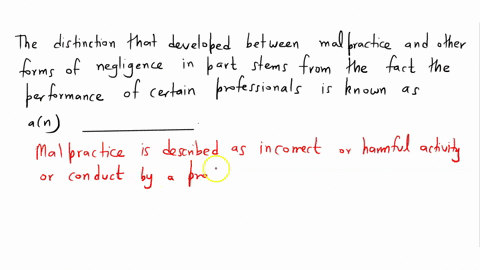 The distinction that developed between malpractice and other
forms of negligence in part stems from the fact the
performance of certain professionals is known as
a(n) __________ .
Malpractice is described as incorrect or harmful activity
or conduct by a pro